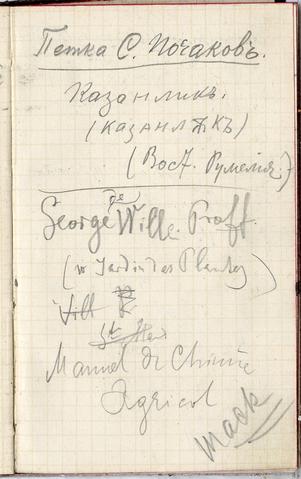 Петка С. Почаковъ.
Казанликъ.
(Казанлжкъ)
(Вост. Румелия.)
George de Ville. Proff.
(w Jardin des Plantes)
Manuel de Chimie
Agricol